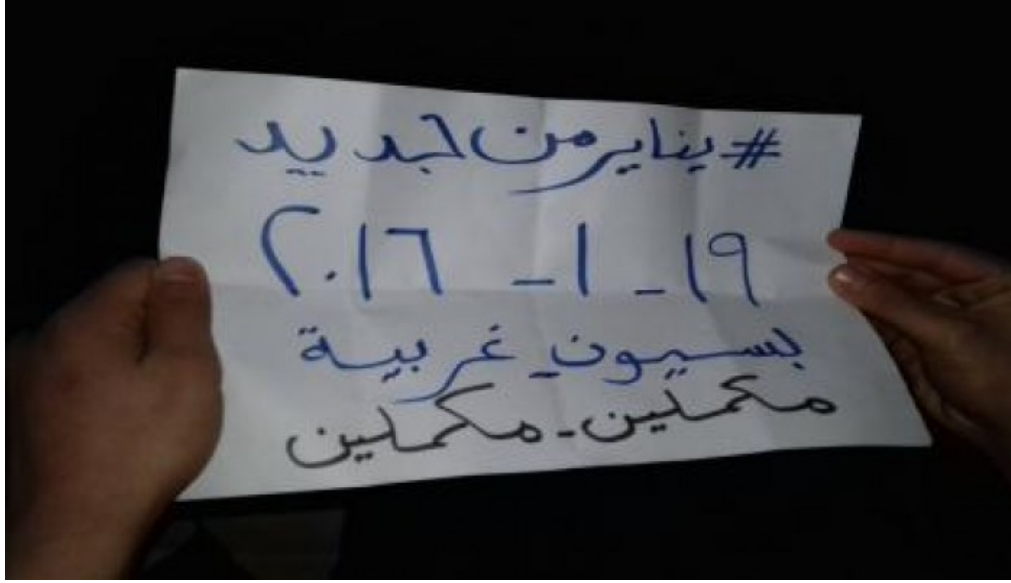 #يناير من جديد
١٩-١-٢٠١٦
بسيون غربية
مكملين - مكملين